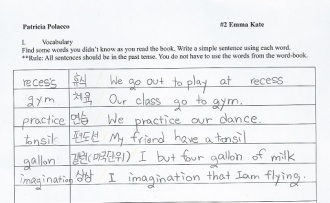 Patricia Polacco #2 Emma Kate
I. Vocabulary
Find some words you didn't know as you read the book. Write a simple sentence using each word.
**Rule: All sentences should be in the past tense. You do not have to use the words from the word-book.
recess 휴식 We go out to play at recess
gym 체육 Our class go to gym.
practice 연습 We practice our dance.
tonsil 편도선 My friend have a tonsil
gallon 갤런(미국단위) I but four gallon of milk
imagination 상상 I imagination that I am flying.